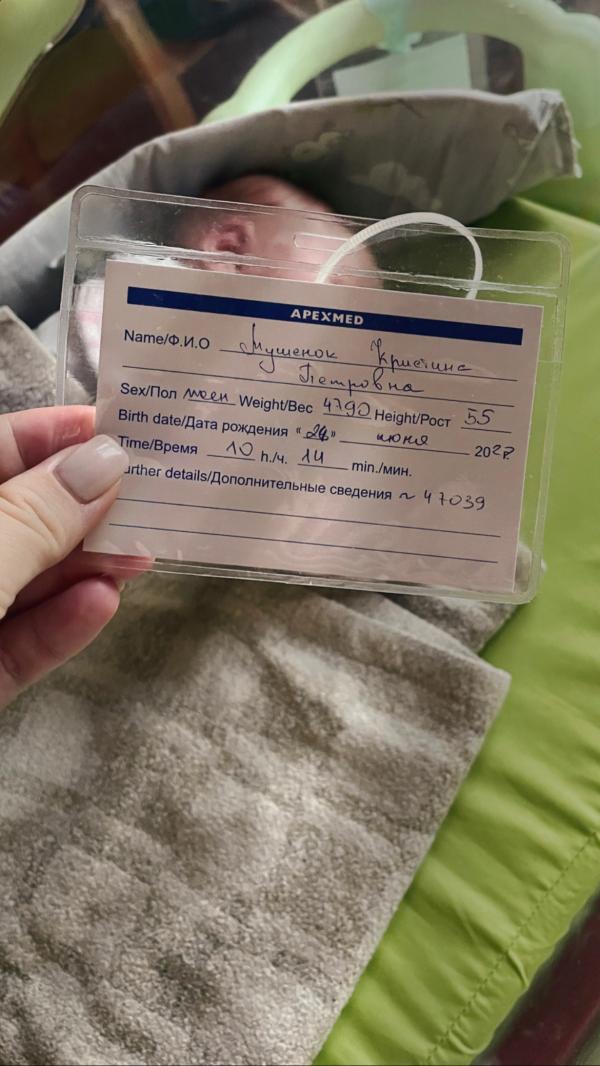 APEXMED
Name/Ф.И.О Мушенок Кристина
Петровна
Sex/Пол Weight/Вес 4790 Height/Рост 55
Birth date/Дата рождения « » июня 202
Time/Время 10 h./ч. 14 min./мин.
urther details/Дополнительные сведения ~ 47039